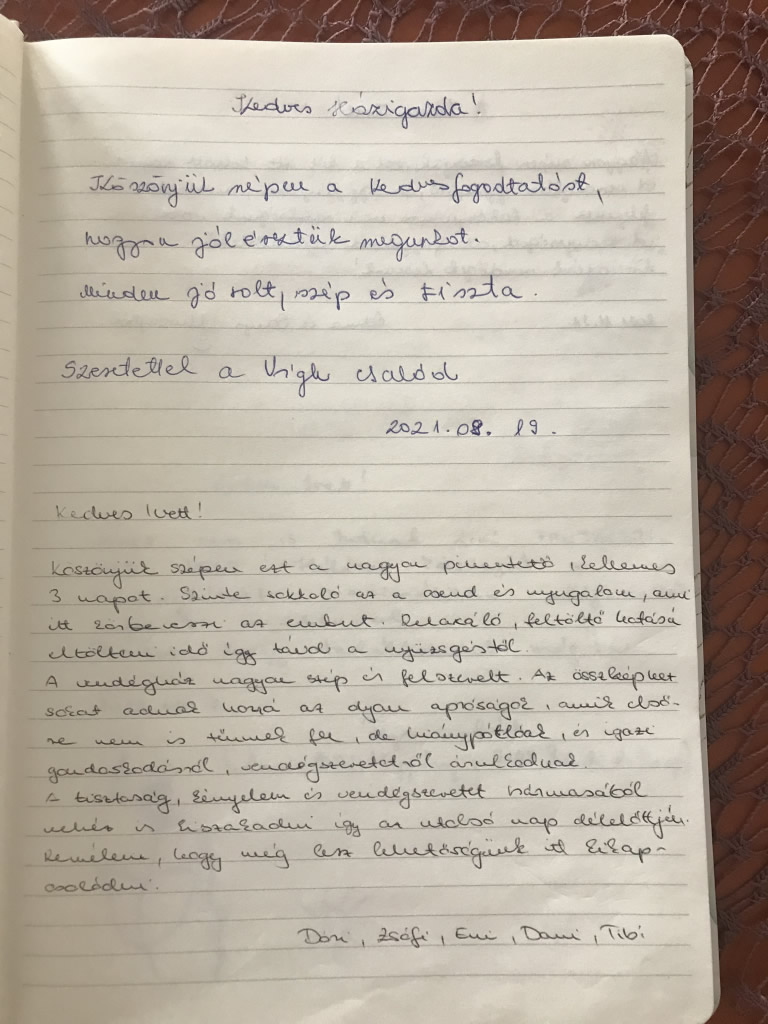 Kedves Házigazda!
Köszönjük szépen a kedves fogadtatást,
hogy jól éreztük magunkat.
Minden jó volt, szép és tiszta.
Szeretettel a Vigh család
2021.08.19.
Kedves Ivett!
Köszönjük szépen ezt a nagyon pihentető, kellemes
3 napot. Szinte sokkoló az a csend és nyugalom, ami
itt körbeveszi az embert. Relaxáló, feltöltő hatású
eltölteni idő így távol a nyüzsgéstől.
A vendégház nagyon szép és felszerelt. Az összképhez
sokat adnak hozzá az olyan apróságok, amik első-
re nem is tűnnek fel, de hiánypótlóak, és igazi
gondoskodásról, vendégszeretetről árulkodnak.
A tisztaság, kényelem és vendégszeretet hármasából
nehéz is kiszakadni így az utolsó nap délelőttjén.
Remélem, hogy még lesz lehetőségünk itt kikap-
csolódni.
Dóri, Zsófi, Emi, Dani, Tibi